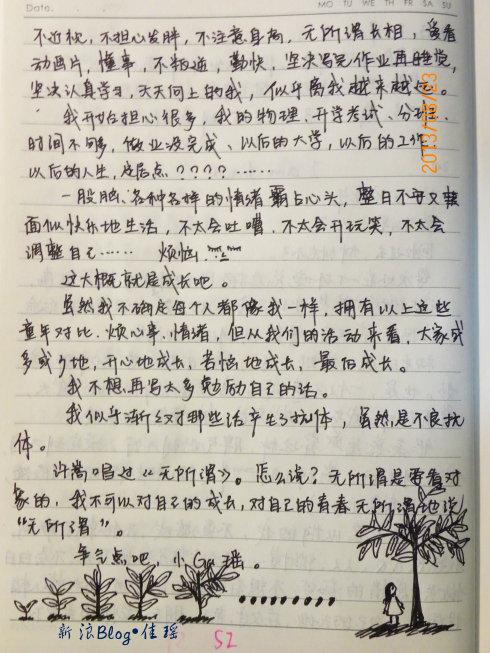 Date.
MO TU WE TH FR SA SU
不近视，不担心发胖，不注意身高，无所谓长相，爱看
动画片，懂事，不叛逆，勤快，坚决写完作业再睡觉，
坚决认真学习，天天向上的我，似乎离我越来越远。
我开始担心很多，我的物理、开学考试、分班、
时间不够，作业没完成、以后的大学，以后的工作，
以后的人生，落后点？？？？……
一股脑、各种各样的情绪霸占心头，整日不安又装
面似快乐地生活，不太会吐嘈，不太会开玩笑，不太会
调整自己…… 烦恼
这大概就是成长吧。
虽然我不确定每个人都像我一样，拥有以上这些
童年对比、烦心事、情绪，但从我们的活动来看，大家或
多或少地，开心地成长，苦恼地成长，最后成长。
我不想再写太多勉励自己的话。
我似乎渐渐对那些话产生了抗体，虽然是不良抗
体。
许嵩唱过《无所谓》。怎么说？无所谓是要看对
象的，我不可以对自己的成长，对自己的青春无所谓地说
“无所谓”。
争气点吧，小Ga瑶。
新浪Blog•佳瑶
52